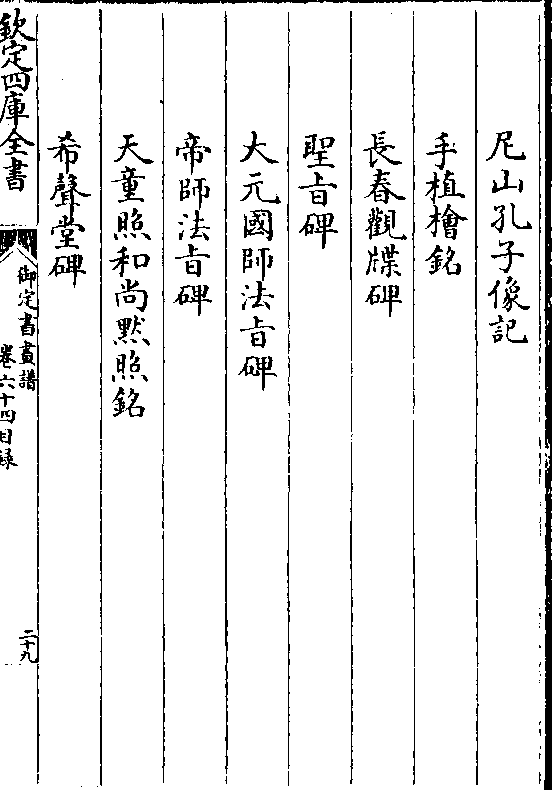 尼山孔子像記
手植檜銘
長春觀牒碑
聖㫖碑
大元國師法㫖碑
帝師法㫖碑
天童照和尚黙照銘
希聲堂碑
欽定四庫全書
御定書畫譜
卷六十四目録
二十九